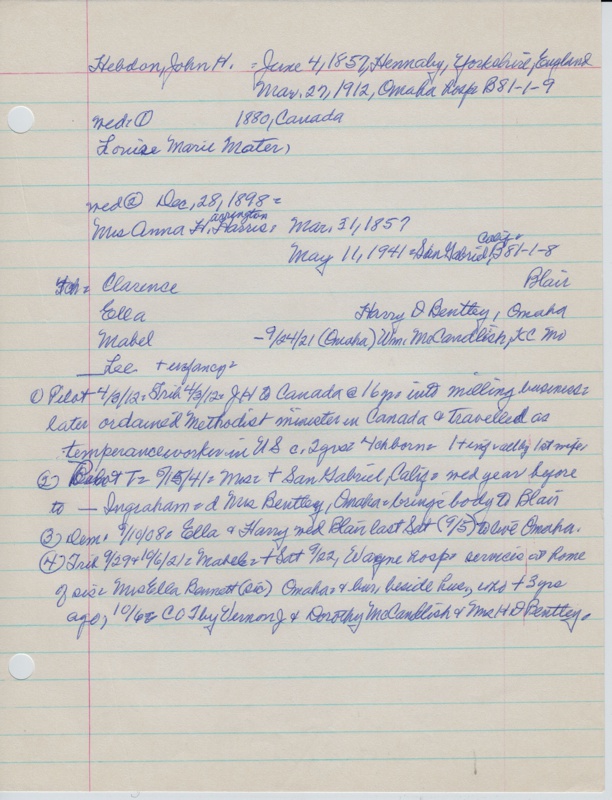 Hebdon, John H. = June 4, 1857, Hennaby, Yorkshire, England
Mar. 27, 1912, Omaha Hosp B81-1-9
med: ① 1880, Canada
Louise Marie Mater,
med ② Dec, 28, 1898 =
Mrs Anna H. Harris = Mar. 31, 1857
arrington
May 11, 1941 = San Gabriel, B81-1-8
Calif =
Ch = Clarence Blair
Ella Harry D Bentley, Omaha
Mabel - 9/24/21 (Omaha) Wm. McCandlish, KC Mo
Lee + infancy =
① Pilot 4/3/12 = Trib 4/3/12 = JH to Canada @ 16 yrs into milling business =
later ordained Methodist minister in Canada & travelled as
temperance worker in US c. 2 yrs = 4 ch born = 1 + inf = all by 1st wife
② T = 5/15/41 = Mrs = + San Gabriel, Calif = med year before
to — Ingraham = d Mrs Bentley, Omaha = brings body to Blair
③ Dem = 9/10/08 = Ella & Harry med Blair last Sat (9/5) to live Omaha.
④ Trib 9/29 & 10/6/21 = Mabel = + Sat 9/22, Wayne hosp = services at home
of sis = Mrs Ella Barnett (sic) Omaha = & bur. beside hus, who + 3 yrs
ago, 10/6 = C O T by Vernon J & Dorothy McCandlish & Mrs H D Bentley.